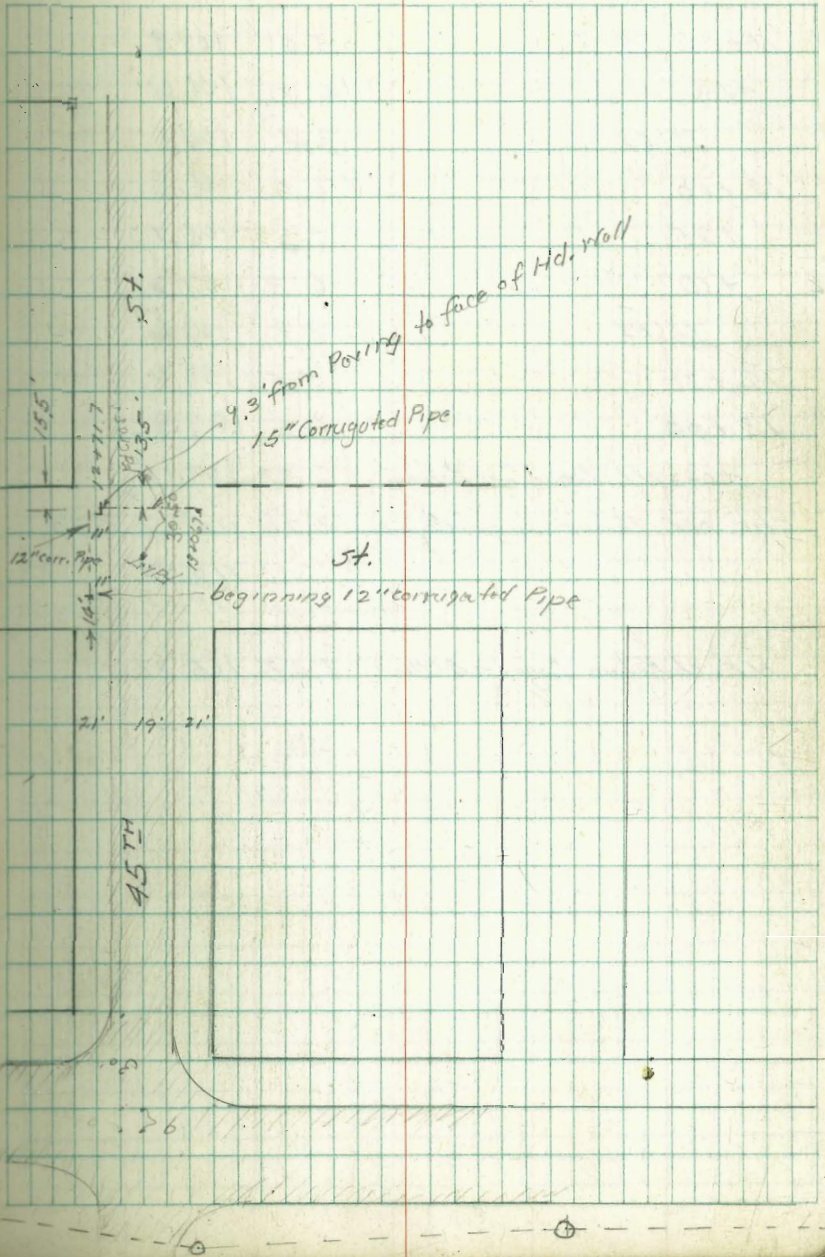 St.
9.3' from Paving to face of Hd. Wall
15" Corrugated Pipe
15.5'
12+71.7
13.5'
12" corr. Pipe
11'
11'
St.
beginning 12" corrugated Pipe
21' 19' 21'
45TH